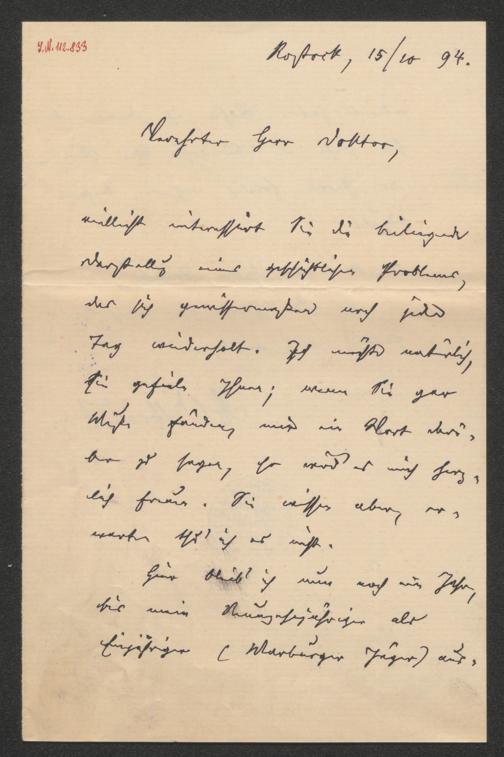 J.N. 112.833
Rostock, 15/10 94.
Verehrter Herr Doktor,
vielleicht interessirt Sie die beiliegende
Darstellung eines geschichtlichen Problems,
das sich gewissermaßen noch jeden
Tag wiederholt. Ich möchte natürlich,
Sie gefiele Ihnen; wenn Sie gar
Muße fänden, mir ein Wort darü-
ber zu sagen, so würd' es mich herz-
lich freuen. Sie wissen aber, er-
warten thu' ich es nicht.
Hier bleib' ich nun noch ein Jahr,
bis mein Neunzehnjähriger als
Einjähriger (Marburger Jäger) aus-